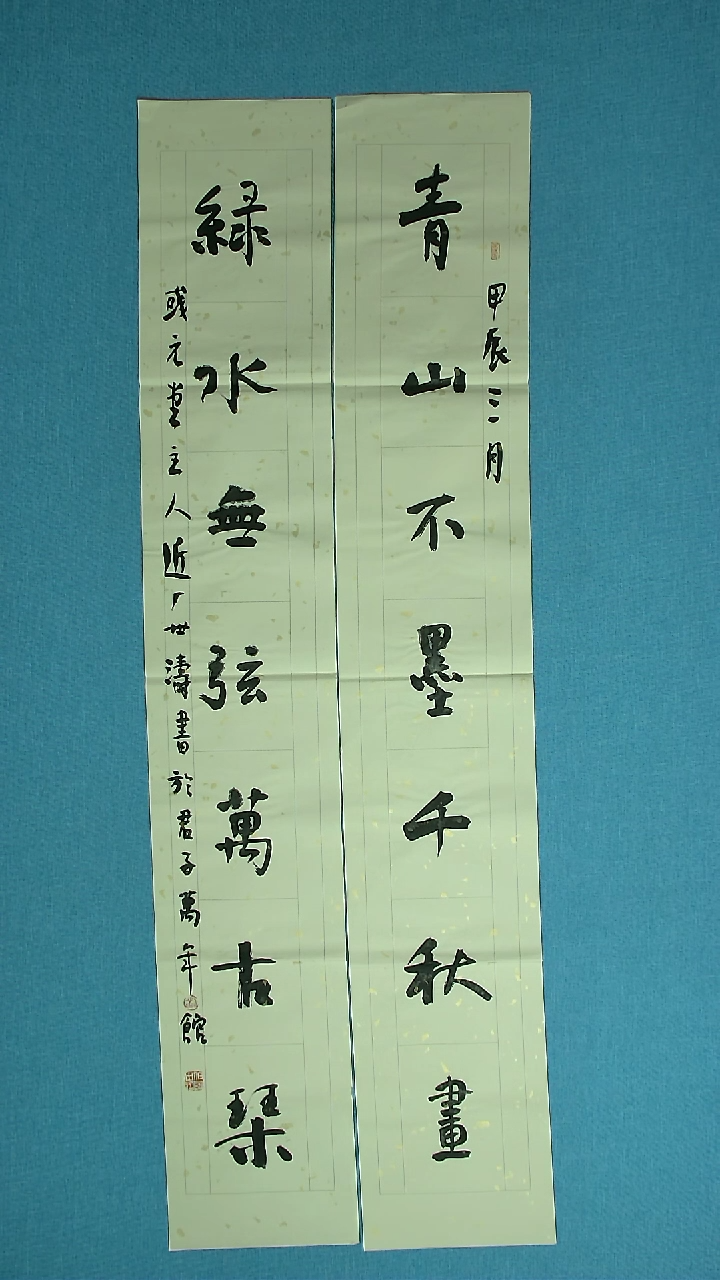 甲辰三月
青山不墨千秋畫
綠水無弦萬古琴
或元堂主人近广世濤書於君子萬年館